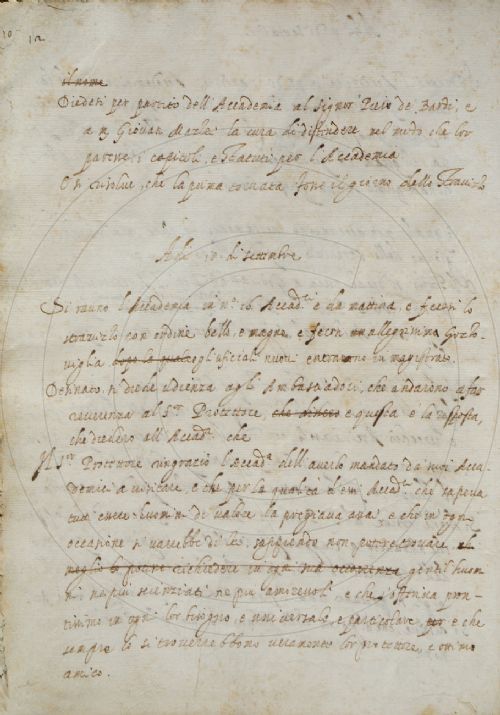 10
12
il nome
Diedesi per partito dell'Accademia al Signor Piero de Bardi, e
a m Giovan la cura di distendere, nel modo che lor
paresse i capitoli, e statuti per l'Accademia
si risolve, che la prima tornata fosse il giorno dello Stravizo
Adì di settembre
Si raunò l'Accademia in n.º 16 Accad.ci e la mattina, e fecesi lo
stravizo con ordine bello, e magno, e fecesi un allegrissima Gozzo-
viglia dopo la quale gli uficiali nuovi entrarono in magistrato.
Desinato, si diede udienza agli Ambasciadori, che andarono a far
reverenza al S.or Protettore, che dissero e questa e la risposta,
che diedero all'Accad.a che
Il S.or Protettore ringraziò l'Accad.a dell'averlo mandato da suoi Acca-
demici a visitare, e che per la qualità di essi Accad.ci che sapeva
tutti essere huomini di valore la pregiava assai e che in ogni
occasione si varrebbe di lei, sappiendo non potere trovare
meglio richiedere in ogni sua occorrenza gentil'huom-
ni ne più scienziati ne più amorevoli e che s'offeriva pron-
tissimo in ogni lor bisogno, e universale, e particolare, e che
sempre lo si troverrebbono veramente lor protettore, e ottimo
amico.